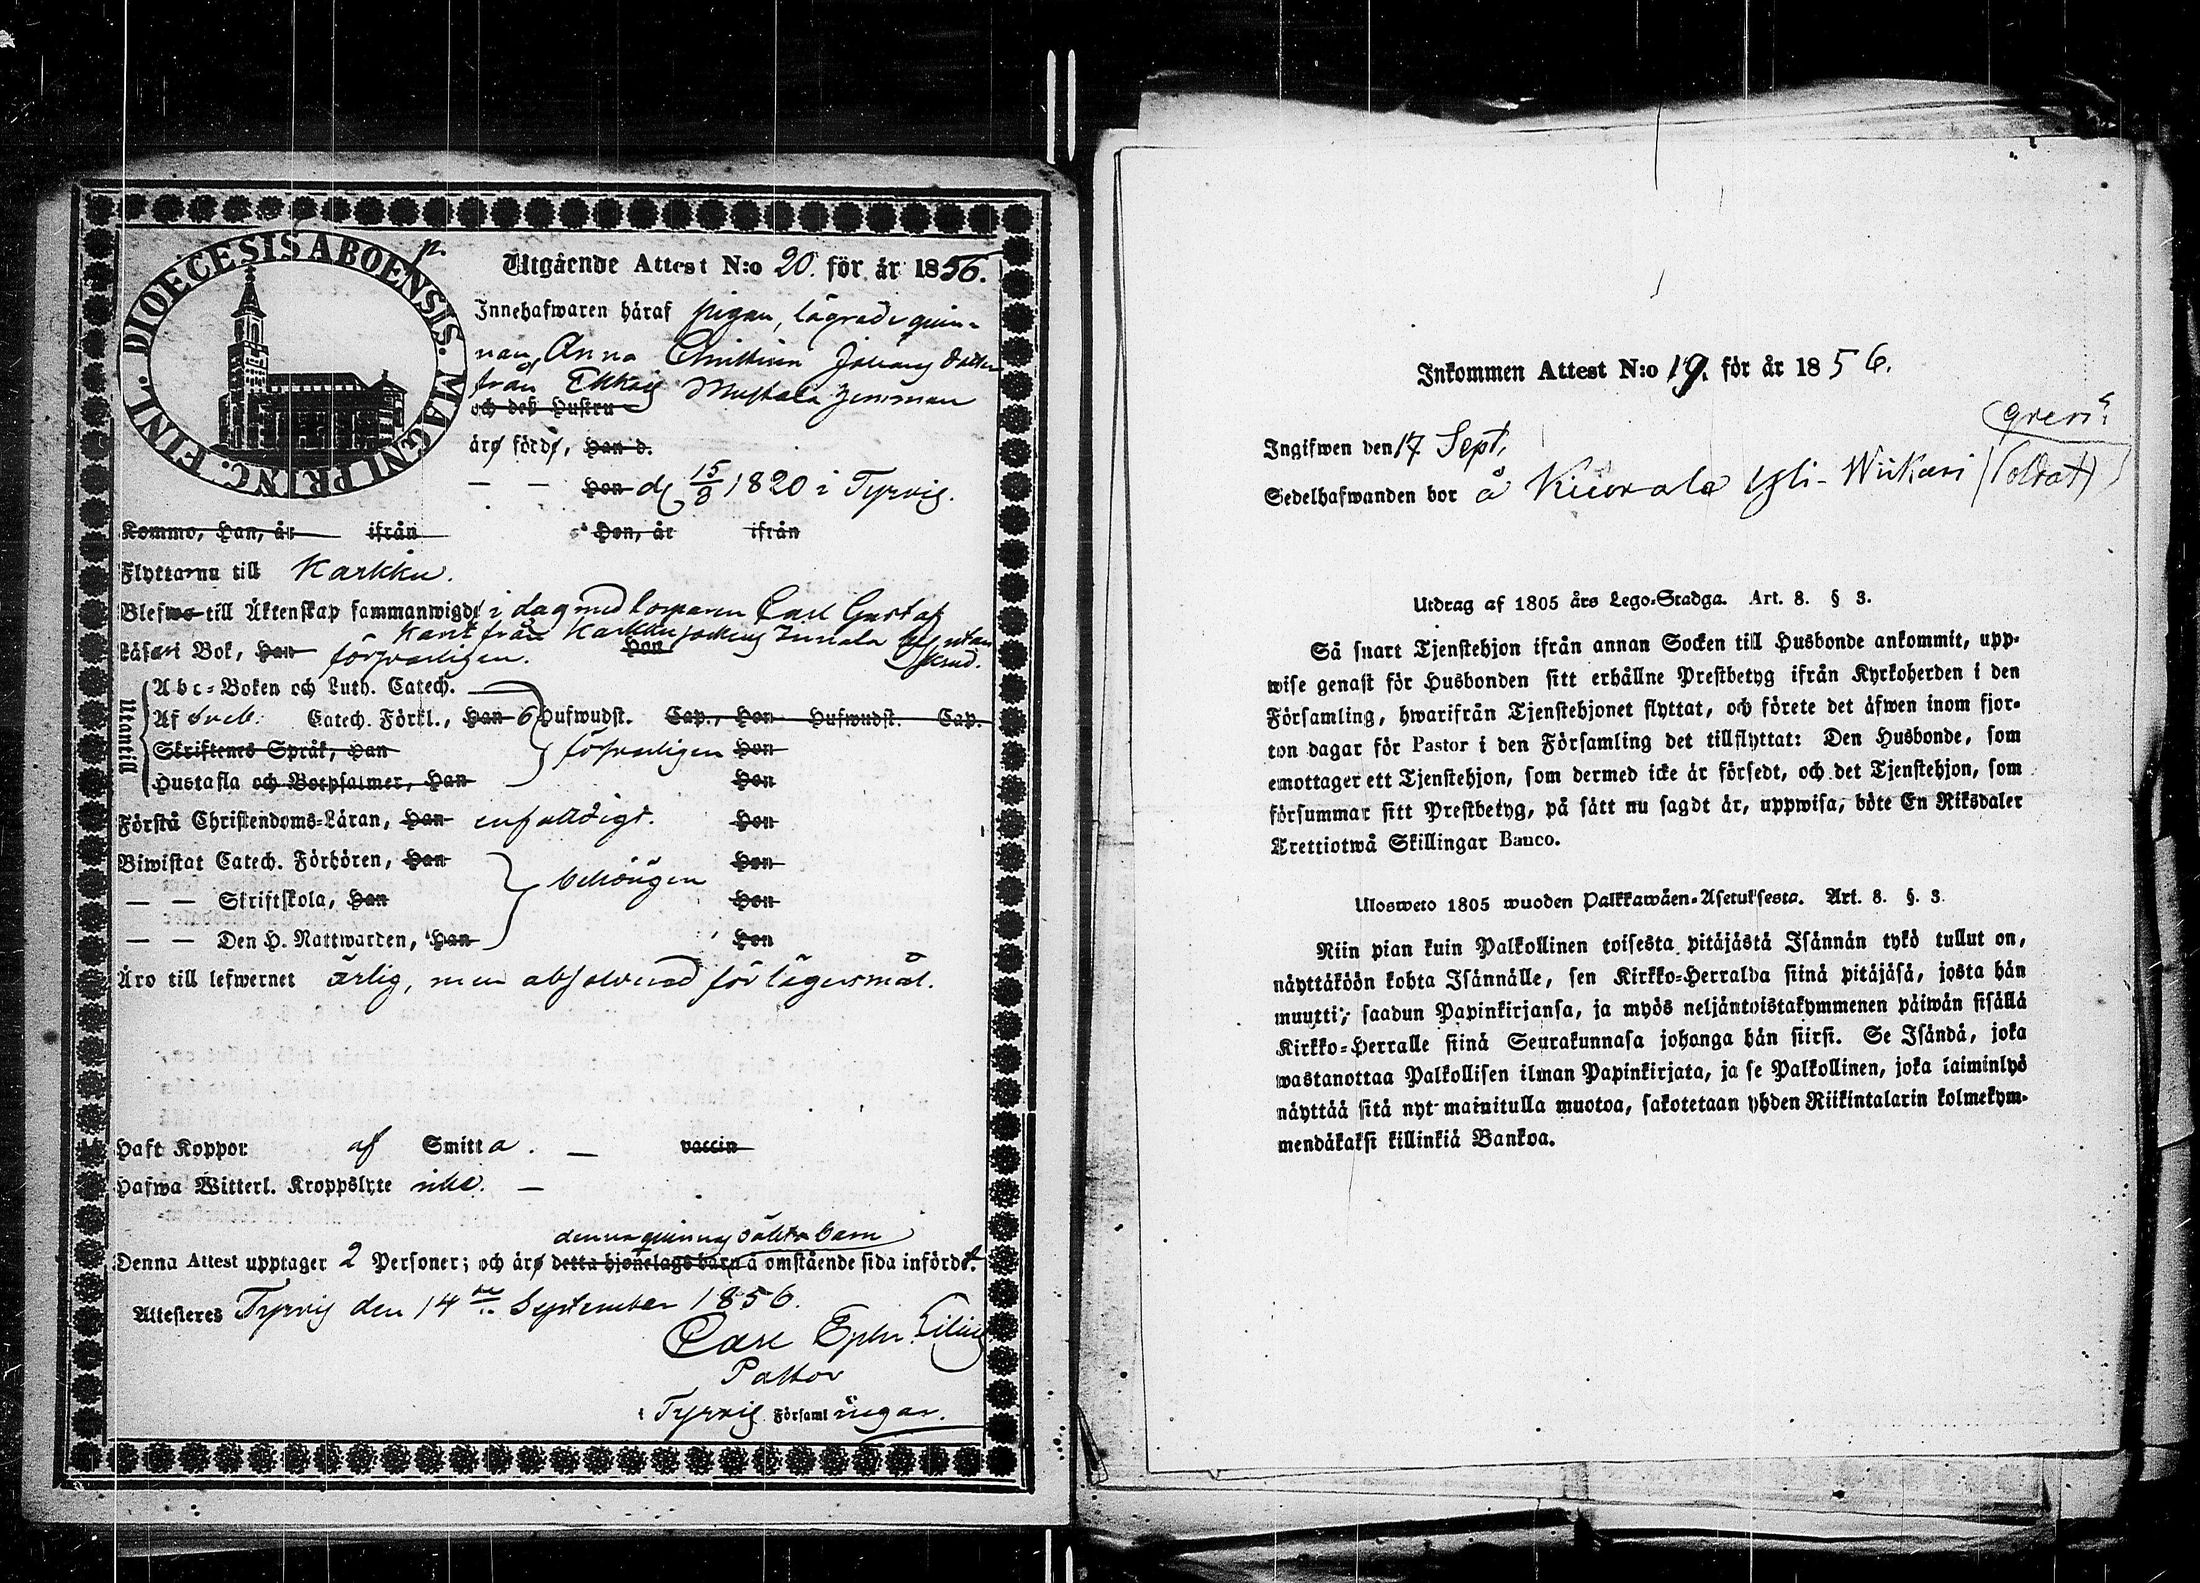 DIOECESIS ABOENSIS. MAGNI PRINC. FINL.
Utgående Attest N:o 20. för år 1856.
Innehafwaren häraf pigan, lägrade quin-
nan Anna Christina Johans dotter
från Ekkois Mustala hemman
och deß Hustru
äro född, Han d.
— — Hon d. 15/8 1820 i Tyrvis.
Kommo, Han, år ifrån Hon, år ifrån
Flyttarna till Karkku.
Blefwo till Äktenskap sammanwigde i dag med Carl Gustaf
från Karkku sockens
Läsa i Bok, Han försvarligen. Hon
Utantill
Abc-Boken och Luth. Catech.
Af Sveb. Catech. Förkl., Han 6 Hufwudst. Cap., Hon Hufwudst. Cap.
Skriftenes Språk, Han försvarligen Hon
Hustafla och Botpsalmer, Han Hon
Förstå Christendoms-Läran, Han enfaldigt. Hon
Biwistat Catech. Förhören, Han behörigen Hon
— — Skriftskola, Han Hon
— — Den H. Nattwarden, Han Hon
Äro till lefwernet ärlig, men absolverad för lägersmål.
Haft Koppor af Smitta. — vaccin
Hafwa Witterl. Kroppslyte icke. —
denna quinnas oäkta barn
Denna Attest upptager 2 Personer; och äro detta hjonelags barn å omstående sida infördt.
Attesteres Tyrvis den 14de September 1856.
Carl Ephr. Lilius
Pastor
i Tyrvis Församlingar.
Inkommen Attest N:o 19. för år 1856.
Ingifwen den 17 Sept.
Sedelhafwanden bor å Kiurala Yli-Wiikari (Soldat)
Utdrag af 1805 års Lego-Stadga. Art. 8. § 3.
Så snart Tjenstehjon ifrån annan Socken till Husbonde ankommit, upp-
wise genast för Husbonden sitt erhållne Prestbetyg ifrån Kyrkoherden i den
Församling, hwarifrån Tjenstehjonet flyttat, och förete det äfwen inom fjor-
ton dagar för Pastor i den Församling det tillflyttat: Den Husbonde, som
emottager ett Tjenstehjon, som dermed icke är försedt, och det Tjenstehjon, som
försummar sitt Prestbetyg, på sätt nu sagdt är, uppwisa, böte En Riksdaler
Trettiotwå Skillingar Banco.
Ulosweto 1805 wuoden Palkkawäen-Asetuksesta. Art. 8. §. 3.
Niin pian kuin Palkollinen toisesta pitäjästä Isännän tykö tullut on,
näyttäköön kohta Isännälle, sen Kirkko-Herralda siinä pitäjäsä, josta hän
muutti, saadun Papinkirjansa, ja myös neljäntoistakymmenen päiwän sisällä
Kirkko-Herralle siinä Seurakunnasa johonga hän siirsi. Se Isändä, joka
wastanottaa Palkollisen ilman Papinkirjata, ja se Palkollinen, joka laiminlyö
näyttää sitä nyt mainitulla muotoa, sakotetaan yhden Riikintalarin kolmekym-
mendäkaksi killinkiä Bankoa.